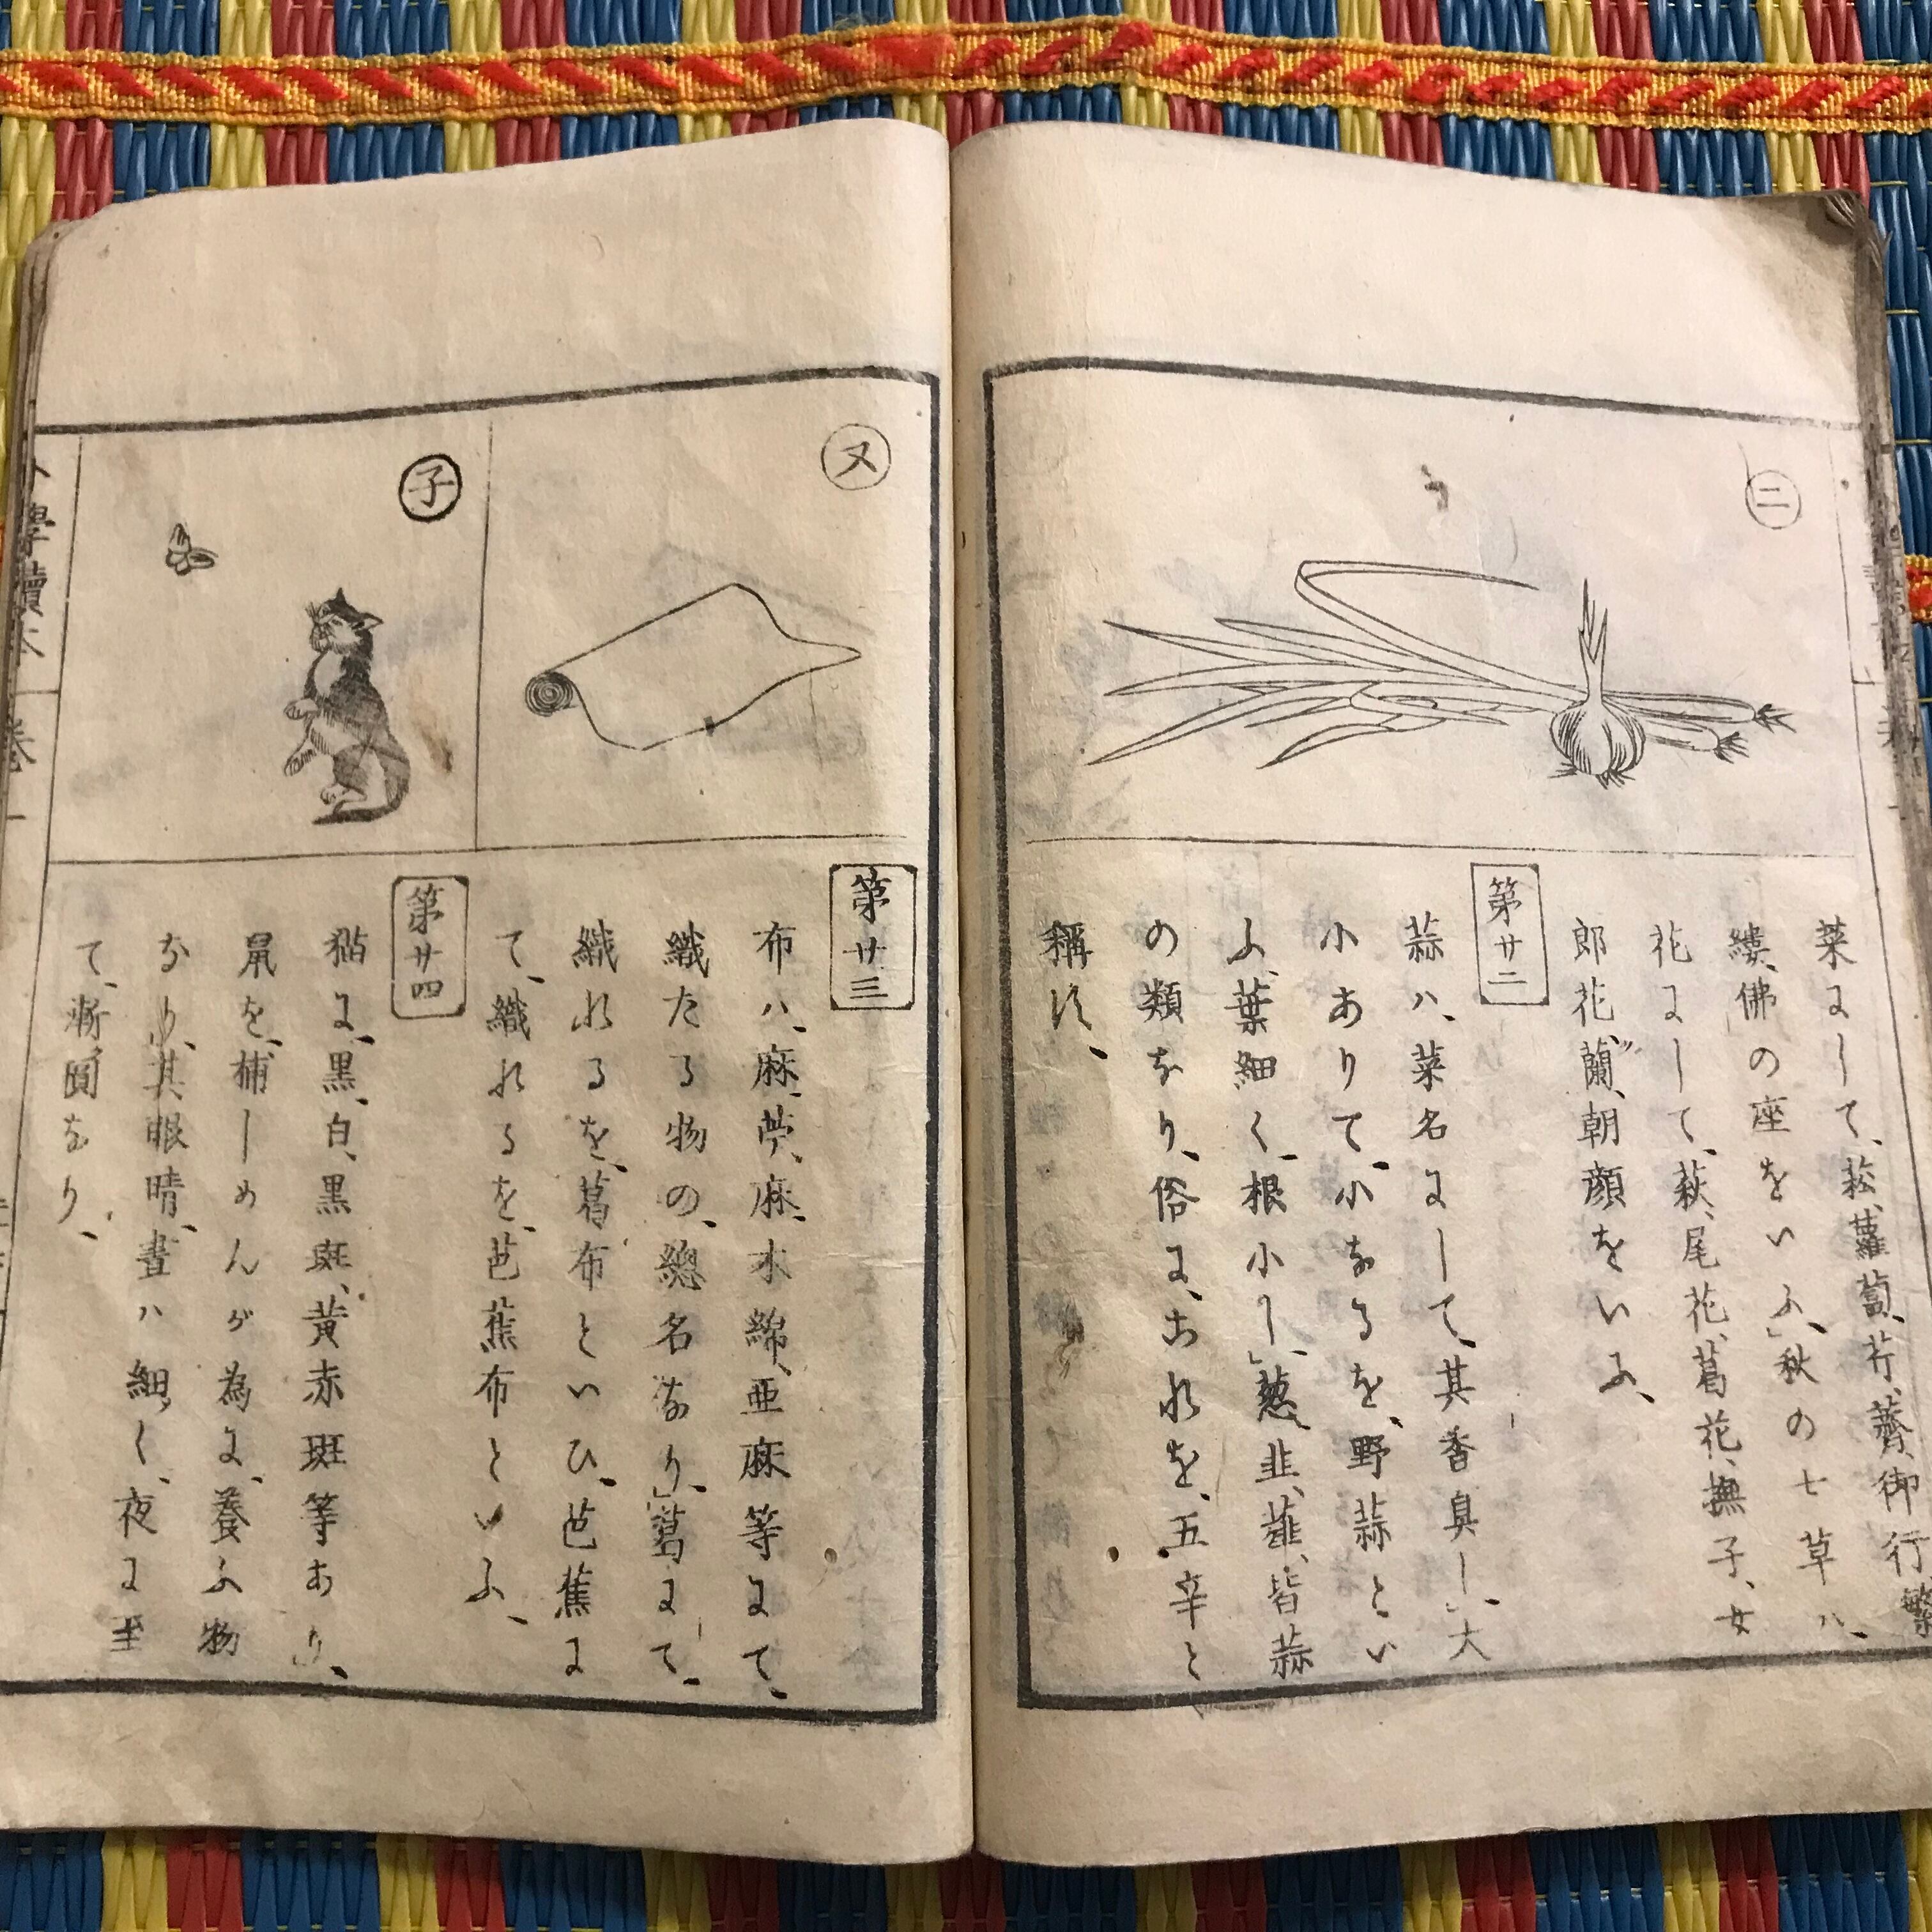 ニ
菜にして、菘、蘿蔔、芹、薺、御行、繁
縷、佛の座をいふ、」秋の七草ハ、
花にして、萩、尾花、葛花、撫子、女
郎花、蘭、朝顔をいふ、
第廿二
蒜ハ、菜名にして、其香臭し、」大
小ありて、小なるを、野蒜とい
ふ、葉細く、根小し、」葱、韭、薤、皆蒜
の類なり、俗に、これを、五辛と
稱す、
ヌ
第廿三
布ハ、麻、苧、麻、木綿、亜麻等にて、
織たる物の、總名なり、」葛にて、
織れるを、葛布といひ、芭蕉に
て、織れるを、芭蕉布といふ、
子
第廿四
猫に、黒、白、黒斑、黄赤斑等あり、」
鼠を、捕しめんが為に、養ふ物
なり、其眼睛、晝ハ細く、夜に至
て、漸圓なり、
小學讀本 卷一